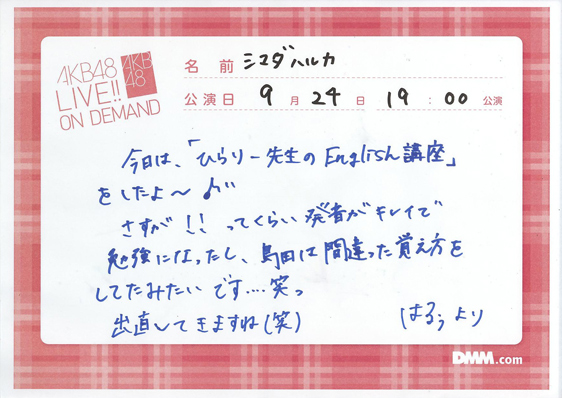 AKB48
LIVE!!
ON DEMAND
AKB
48
名 前 シマダハルカ
公演日 9 月 24 日 19 : 00 公演
今日は、「ひらりー先生の English 講座」
をしたよ〜♪
さすが!!ってくらい発音がキレイで
勉強になったし、島田は間違った覚え方を
してたみたいです....笑っ
出直してきますね(笑)
はるぅより
DMM.com